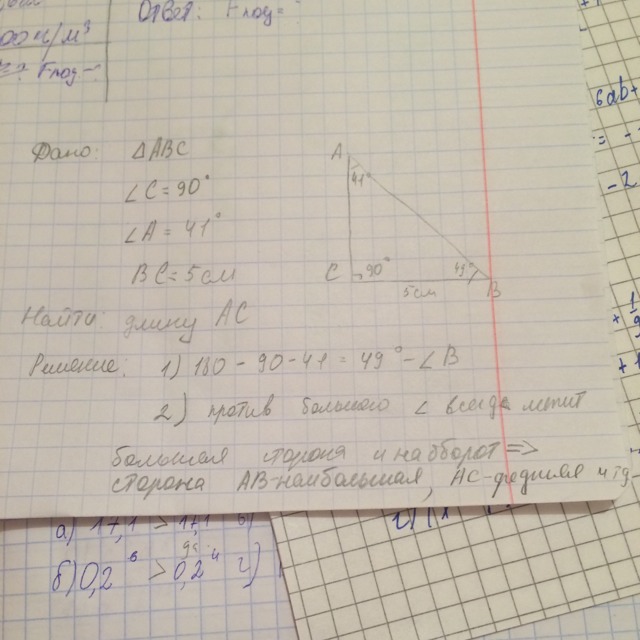 Ответ: Fпод=?
00 н/м³
Fпод-?
Дано: ΔABC
∠C=90°
∠A=41°
BC=5см
A
41°
C 90°
B
5см
Найти: длину AC
Решение: 1) 180-90-41=49°-∠B
2) против большого ∠ всегда лежит
большая сторона и наоборот =>
сторона AB-наибольшая, AC-средняя и тд
а) 17,1 > 17,1
б) 0,2 > 0,2
6ab+
-2